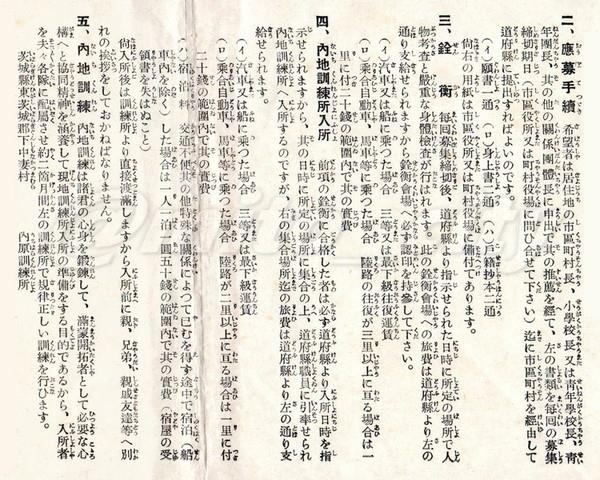 二、應募手續 希望者は居住地の市區町村長、小學校長、又は靑年學校長、靑
年團長、其の他の關係團體に申出て其の推薦を經て、左の書類を每回の募集
締切期日（市區役所又は町村役場に問ひ合せて下さい）迄に市區町村を經由して
道府縣に提出すればよいのです。
（イ）願書一通 （ロ）身上調書二通 （ハ）戶籍抄本二通
尙右の用紙は市區役所又は町村役場に備付てあります。
三、銓衡 每回募集締切後、道府縣より指示せられた日時に所定の場所で人
物考査と嚴重な身體檢査が行はれます。此の銓衡會場への旅費は道府縣より左の
通り支給されますから銓衡會場へ必ず認印を持參して下さい。
（イ）汽車又は船に乘つた場合 三等又は最下級往復運賃
（ロ）乘合自動車、馬車等に乘つた場合 陸路の往復が三里以上に亙る場合は一
里に付二十錢の範圍內で其の實費
四、內地訓練所入所 前項の銓衡に合格した者は必ず道府縣より入所日時を指
示せられますから、其の日時に所定の場所に集合の上、道府縣職員に引率せられ
內地訓練所へ入所するのですが、右の集合場所迄の旅費は道府縣より左の通り支
給せられます。
（イ）汽車又は船に乘つた場合 三等又は最下級運賃
（ロ）乘合自動車、馬車等に乘つた場合 陸路が二里以上に亙る場合は一里に付
二十錢の範圍內で其の實費
（ハ）宿泊料 交通不便其の他特殊な關係によつて已むを得ず途中で宿泊（船
車內を除く）した場合は一人一泊一圓五十錢の範圍內で其の實費（宿屋の受
領書を失はぬこと）
尙入所後は訓練所より直接渡滿しますから入所前に親、兄弟、親戚友達等へ別
れの挨拶をしておかねばなりません。
五、內地訓練 內地訓練は諸君の心身を鍛鍊して、滿蒙開拓者として必要な心
構へと協同精神を涵養して現地訓練所入所の準備をする目的であるから、入所者
を夫々各隊に配屬させ約二箇月間左の訓練所で規律正しい訓練を行ひます。
茨城縣東茨城郡下中妻村 內原訓練所